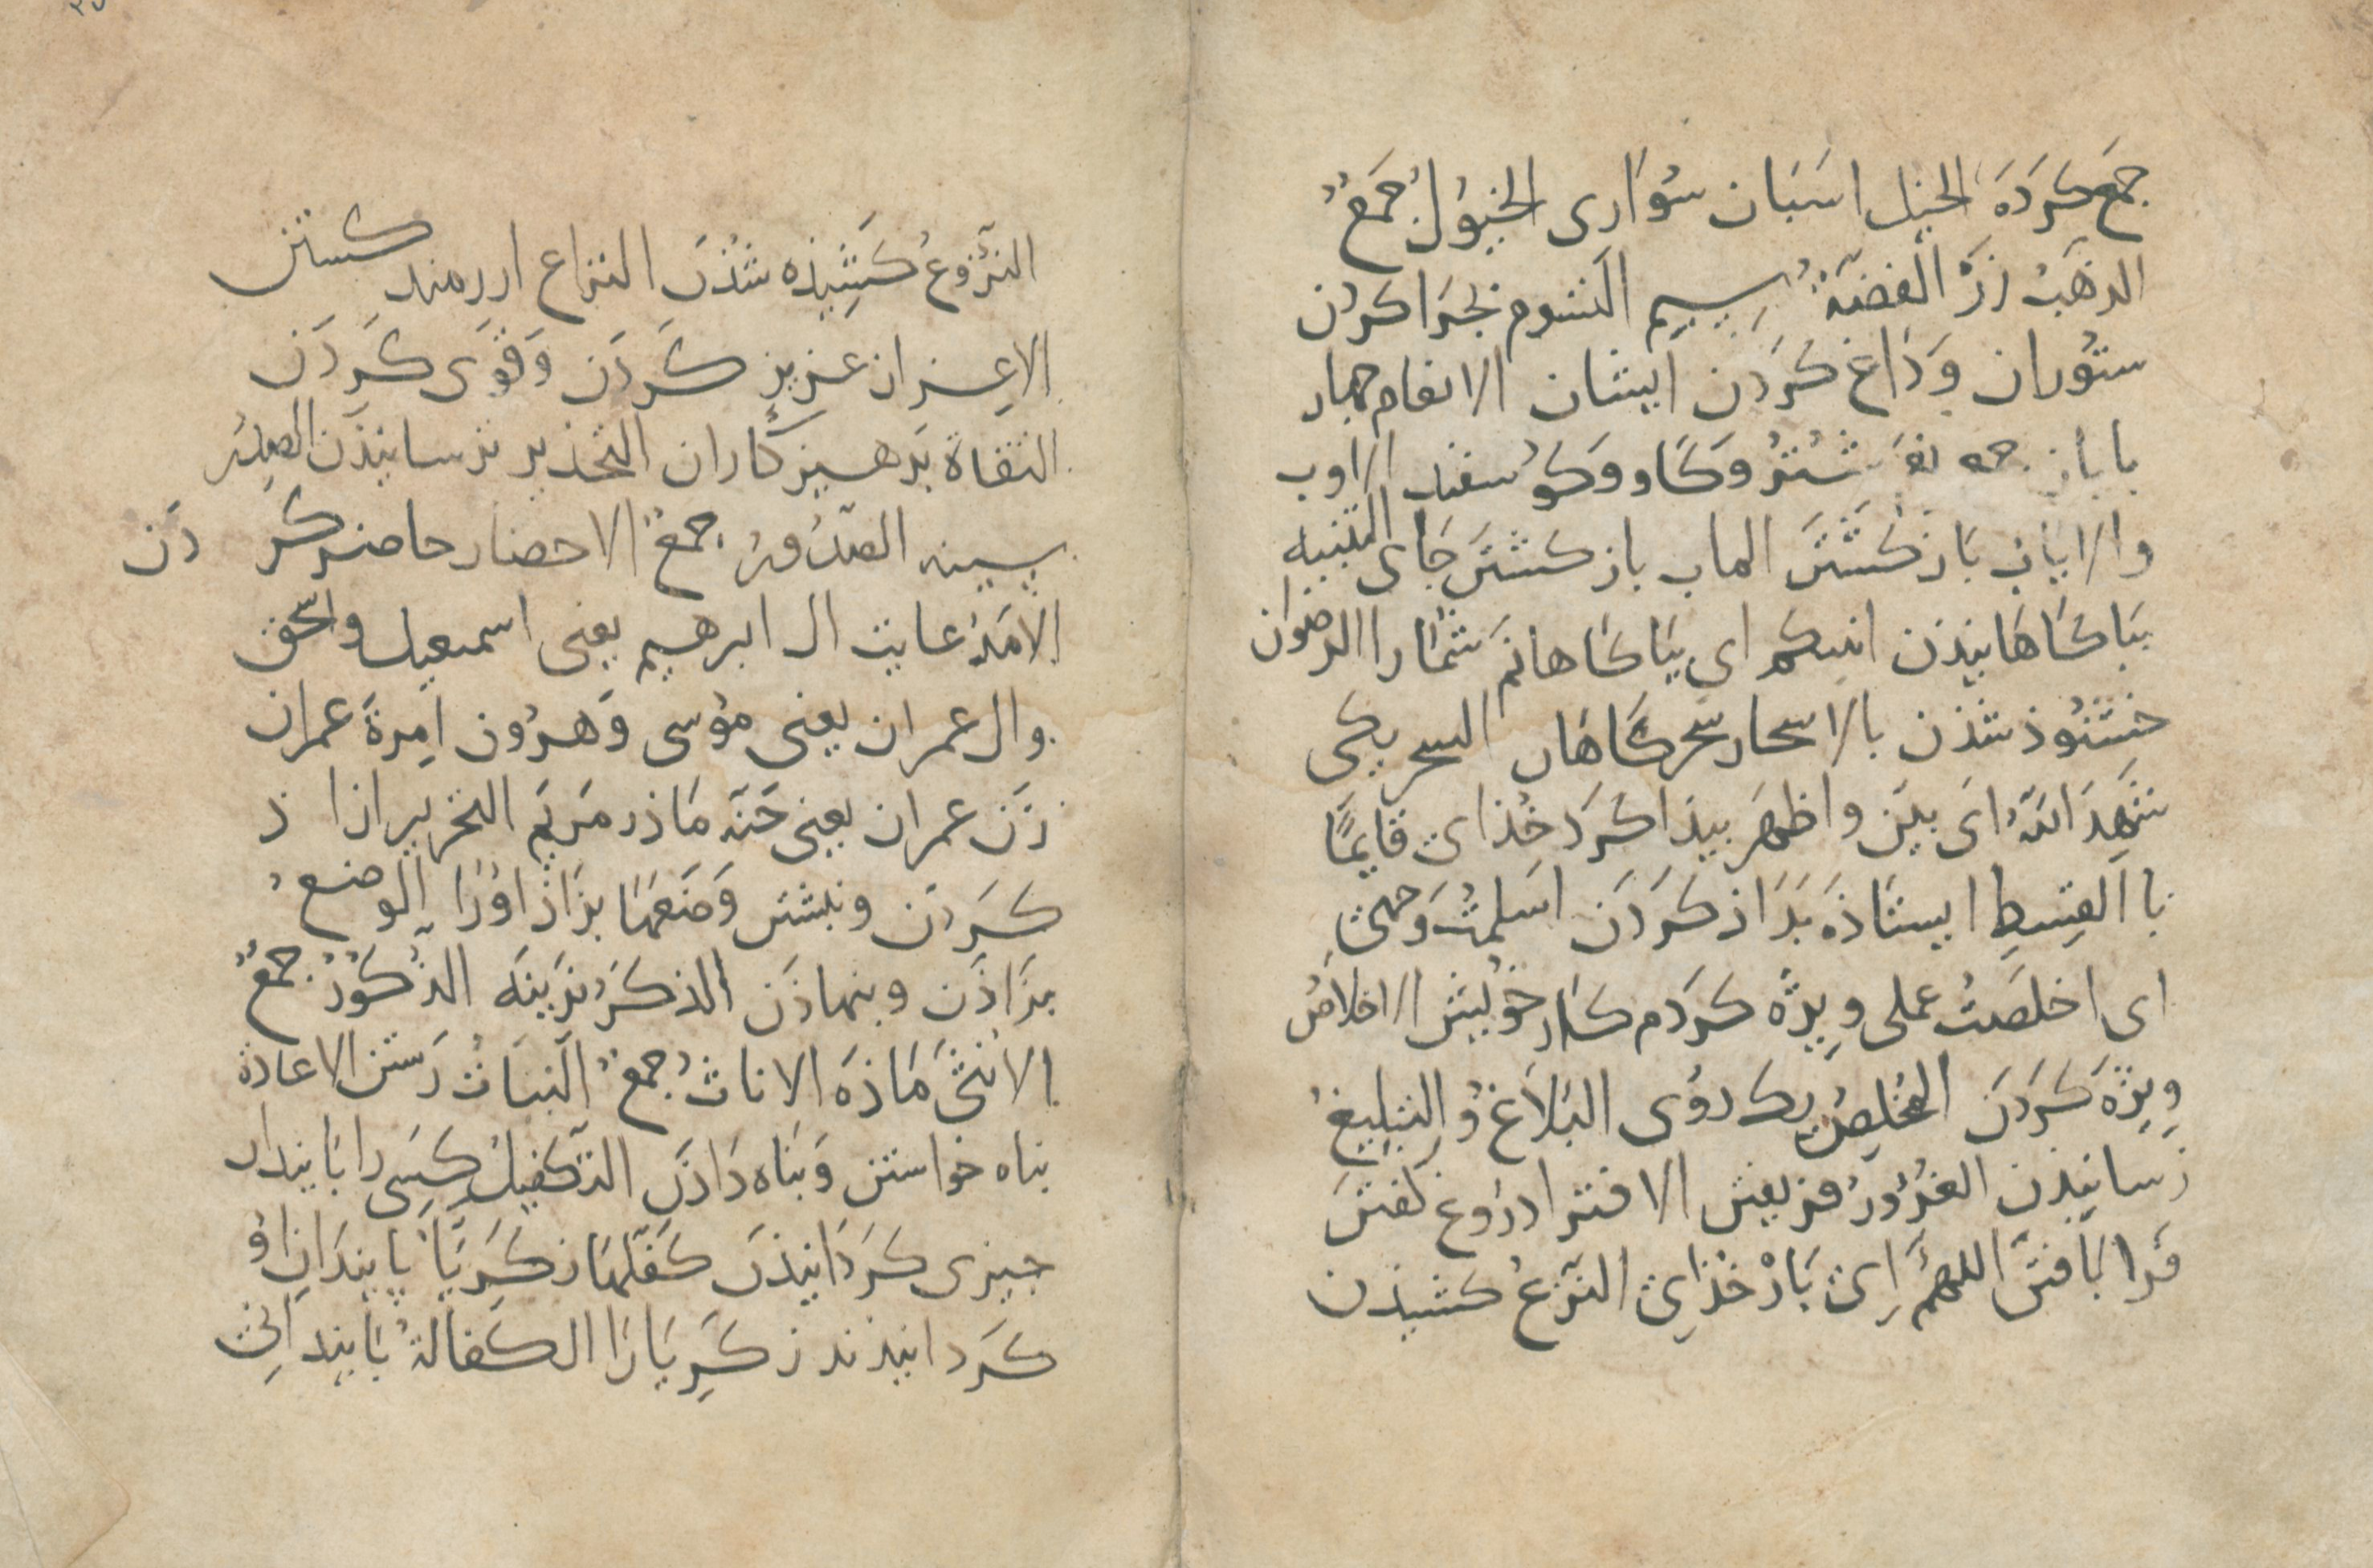 جمَع كَردَه الخيل اسَبَان سُوَارى الخُيوُلُ جَمَعُ
الذهَبُ زَرّ الفضَّةُ سِيِم التسَوم بجَرا كردن
ستُوران وَدَاغ كَردَن ايشان الانعام جهار
با يان شُتُرُ وَكَاو وَكوُسفند الاوب
والاياب بَاز كَشتَن الماب باز كشتَن جَاى التنبيه
بَيَا كَاهَانيِذن انبيكم اى بَيَا كَاهَانم شُمَارا الرضوان
خشنُوذ شذن بالاسحار سحركَاهَان السحر يكى
شَهِدَ اللّهُ اىَ بيَن واظهَر بيذا كرَد خُذاى قايمًا
باالقِسطِ ايستَاذَه بَدَاذ كَردَن اسَلمتُ وَجهىِ
اى اخلَصَتُ عملى ويِژَه كَردم كَار خوُيش الاخلاصُ
ويِژَه كَردَن المُخلِصُ يك روُى البَلاَغ وُ التبليغُ
رَسانيذن الغُرُورُ فريفتن الافترا درُوغ كَفتَن
فَرا بَافتَن اللهمَّ اِى بَارْ خُذاىِ النَزعُ كشيذن
النَزُوعُ كَشِيذه شُذَن النزاع ارزمند كسشتن
الاعِزاز عزيز كَردَن وَقوَى كَردَن
التقاة پَرهيز كَاران التحذير ترسانيذَن الصدرُ
سينه الصّدُورُ جمعُ الاحضار حاضر كر دَن
الامَدُ عايت ال ابرهيم يعنى اسمعيل واسحق
وال عمران يعنى موُسى وَهرُون امِرةَ عمران
زَن عمران يعنى حَنَه مَاذر مَريَم التحرير ازا ذ
كَردَن ونبشتن وَضَعَهَا بزَاذ اوُرَا الوضعُ
بزَاذَن وبنهاذَن الذكَرُ نرَينَه الذكوُرُ جمعُ
الانثىَ مَاذَه الاناثُ جمعُ النَبَاتُ رَستن الاعاذة
بناه خواستن وَبَناه دَاذَن التكفيلُ كسِى را بَايندان
جيزى كَردَانيذَن كفَّلهَا زكَرِيَّا پَا ينِدَان اوُ
كَردانيذند زكَرِيَا رَا الكفالةُ بَايندانى